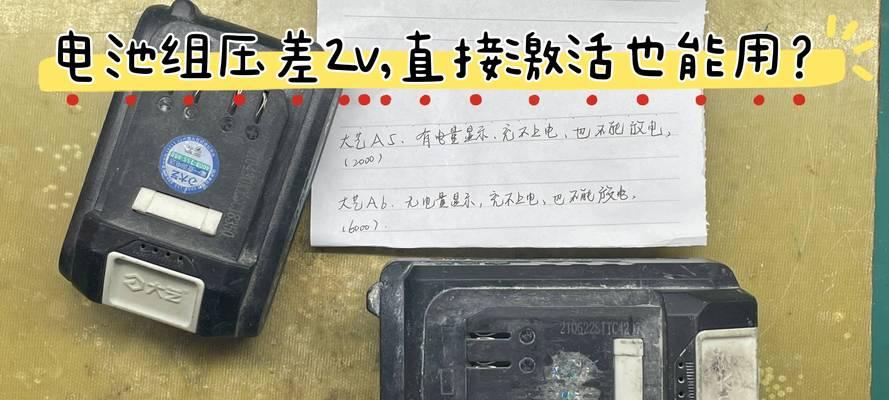 电池组压差2v,直接激活也能用?
大艺A5、有电量显示、充不上电、也不能放电,
(2000)
大艺A6、无电量显示,充不上电、也不能放电,
(6000)
大艺